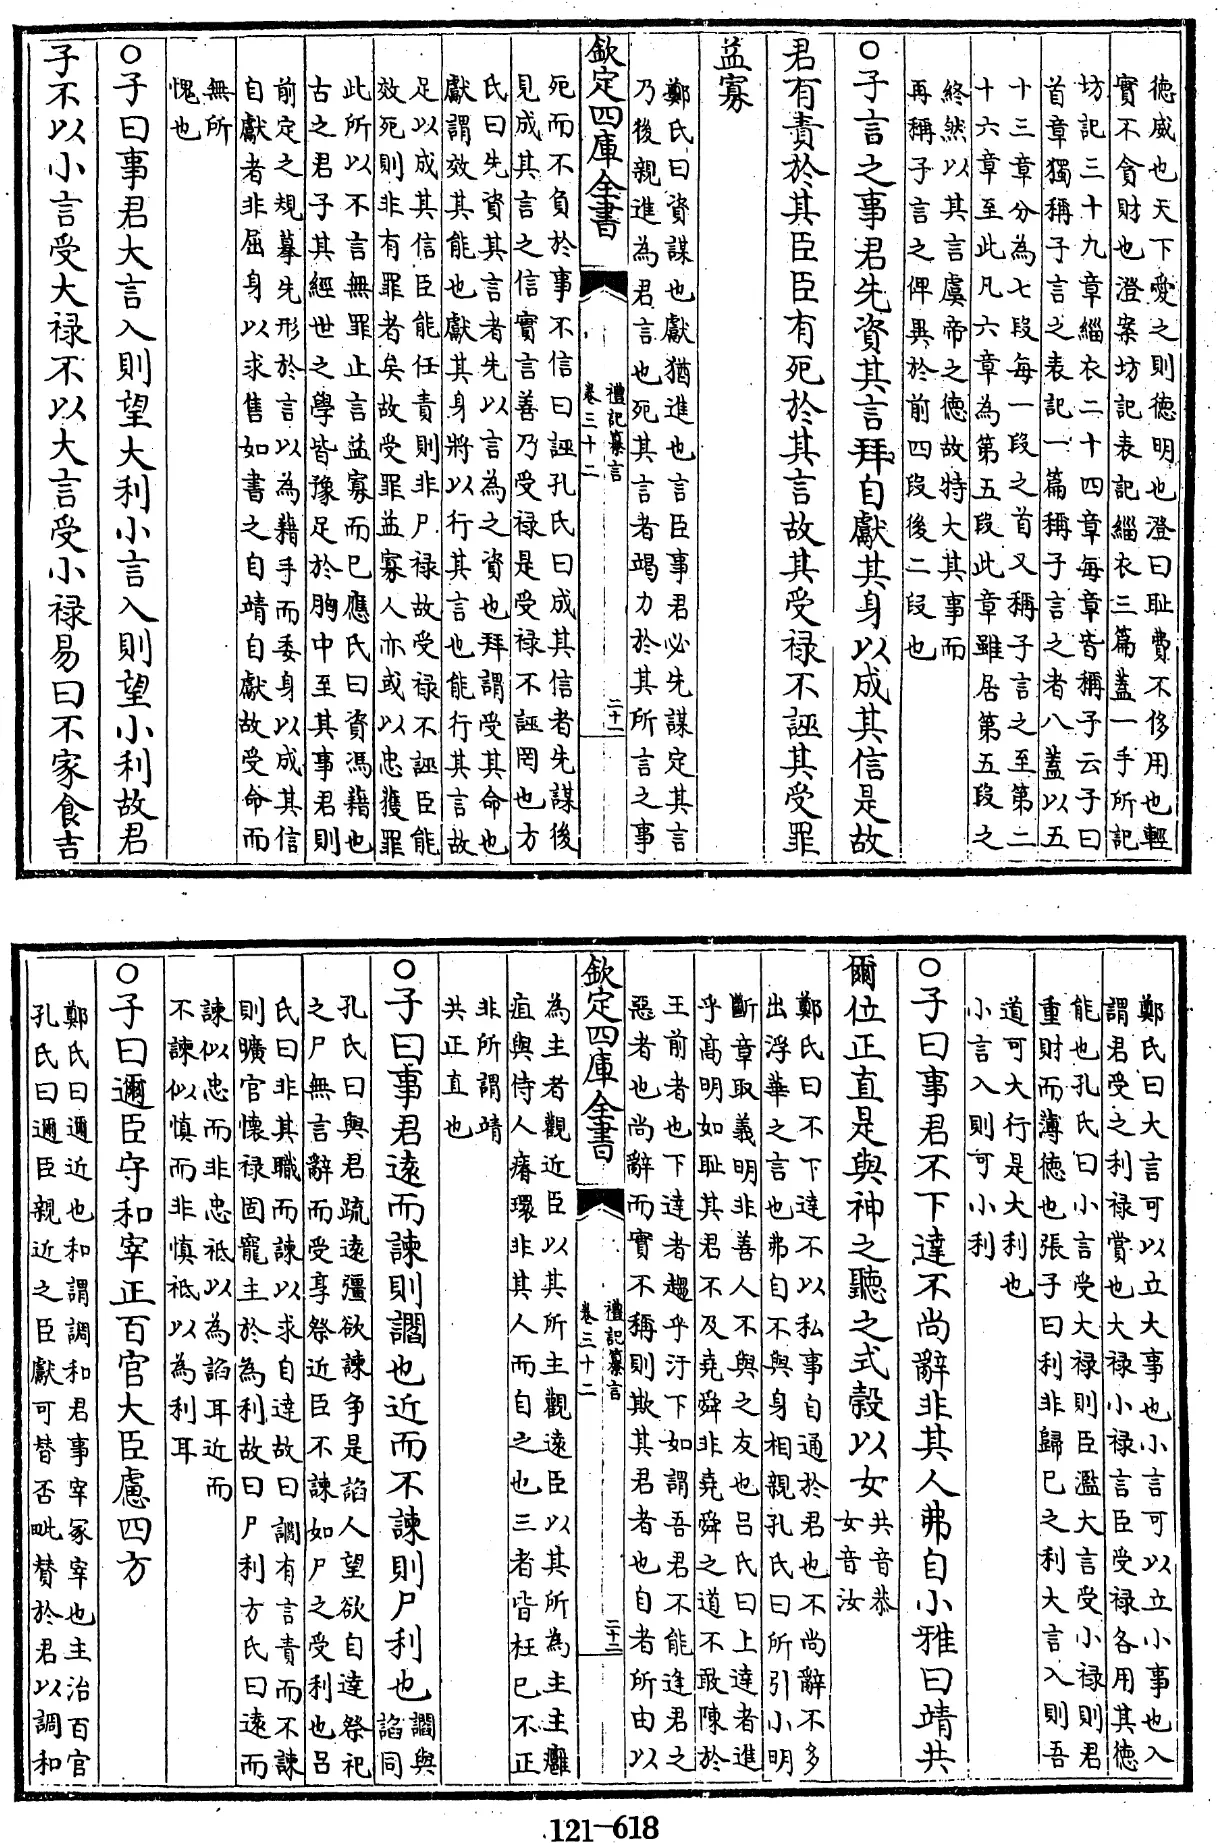 德威也天下愛之則德明也澄曰恥費不侈用也輕
實不貪財也澄案坊記表記緇衣三篇蓋一手所記
坊記三十九章緇衣二十四章每章皆稱子云子曰
首章獨稱子言之表記一篇稱子言之者八蓋以五
十三章分為七段每一段之首又稱子言之至第二
十六章至此凡六章為第五段此章雖居第五段之
終然以其言虞帝之德故特大其事而
再稱子言之俾異於前四段後二段也
○子言之事君先資其言拜自獻其身以成其信是故
君有責於其臣臣有死於其言故其受禄不誣其受罪
益寡
鄭氏曰資謀也獻猶進也言臣事君必先謀定其言
乃後親進為君言也死其言者竭力於其所言之事
欽定四庫全書
禮記纂言
卷三十二
二十一
死而不負於事不信曰誣孔氏曰成其信者先謀後
見成其言之信實言善乃受禄是受禄不誣罔也方
氏曰先資其言者先以言為之資也拜謂受其命也
獻謂效其能也獻其身將以行其言也能行其言故
足以成其信臣能任責則非尸禄故受禄不誣臣能
效死則非有罪者矣故受罪益寡人亦或以忠獲罪
此所以不言無罪止言益寡而已應氏曰資馮藉也
古之君子其經世之學皆豫足於胸中至其事君則
前定之規摹先形於言以為藉手而委身以成其信
自獻者非屈身以求售如書之自靖自獻故受命而
無所
愧也
○子曰事君大言入則望大利小言入則望小利故君
子不以小言受大禄不以大言受小禄易曰不家食吉
鄭氏曰大言可以立大事也小言可以立小事也入
謂君受之利禄賞也大禄小禄言臣受禄各用其德
能也孔氏曰小言受大禄則臣濫大言受小禄則君
重財而薄德也張子曰利非歸己之利大言入則吾
道可大行是大利也
小言入則可小利
○子曰事君不下達不尚辭非其人弗自小雅曰靖共
爾位正直是與神之聽之式穀以女
共音恭
女音汝
鄭氏曰不下達不以私事自通於君也不尚辭不多
出浮華之言也弗自不與身相親孔氏曰所引小明
斷章取義明非善人不與之友也呂氏曰上達者進
乎高明如恥其君不及堯舜非堯舜之道不敢陳於
王前者也下達者趨乎汙下如謂吾君不能逢君之
惡者也尚辭而實不稱則欺其君者也自者所由以
欽定四庫全書
禮記纂言
卷三十二
二十二
為主者觀近臣以其所主觀遠臣以其所為主主癰
疽與侍人瘠環非其人而自之也三者皆枉己不正
非所謂靖
共正直也
○子曰事君遠而諫則讇也近而不諫則尸利也
讇與
諂同
孔氏曰與君疏遠彊欲諫争是諂人望欲自達祭祀
之尸無言辭而受享祭近臣不諫如尸之受利也呂
氏曰非其職而諫以求自達故曰讇有言責而不諫
則曠官懷禄固寵主於為利故曰尸利方氏曰遠而
諫似忠而非忠祗以為諂耳近而
不諫似慎而非慎祗以為利耳
○子曰邇臣守和宰正百官大臣慮四方
鄭氏曰邇近也和謂調和君事宰冢宰也主治百官
孔氏曰邇臣親近之臣獻可替否毗贊於君以調和
121—618